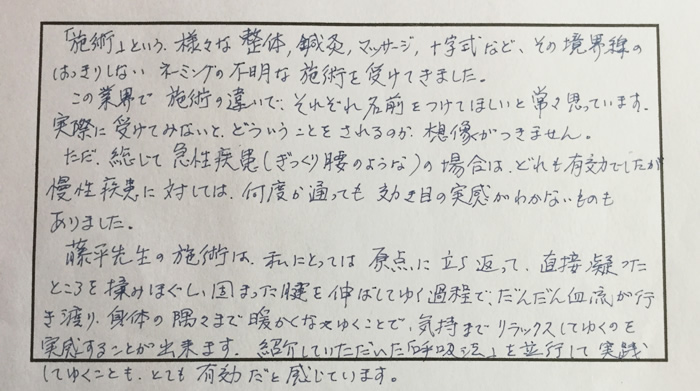 「施術」という、様々な 整体, 鍼灸, マッサージ, 十字式など、その境界線の
はっきりしない ネーミングの不明な 施術を受けてきました。
この業界で 施術の違いで、それぞれ名前をつけてほしいと常々思っています。
実際に受けてみないと、どういうことをされるのか、想像がつきません。
ただ、総じて 急性疾患(ぎっくり腰のような)の場合は、どれも有効でしたが
慢性疾患に対しては、何度か通っても 効き目の実感がわかないものも
ありました。
藤平先生の施術は、私にとっては 原点に立ち返って、直接凝った
ところを揉みほぐし、固まった腱を伸ばしてゆく過程で、だんだん血流が行
き渡り、身体の隅々まで暖かくなってゆくことで、気持までリラックスしてゆくのを
実感することが出来ます。紹介していただいた「呼吸法」を並行して実践
してゆくことも、とても有効だと感じています。